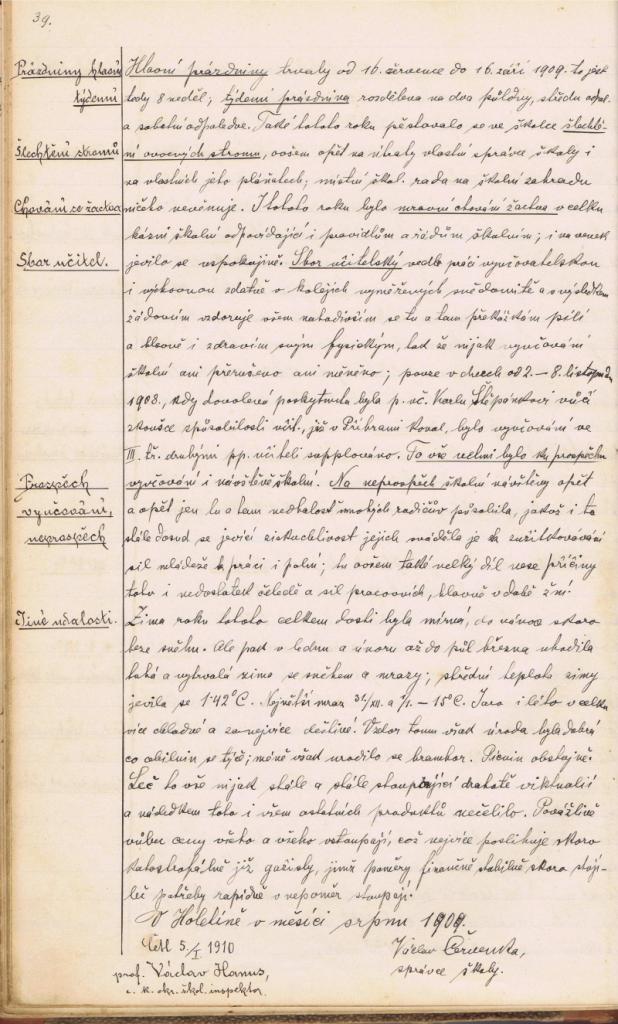 39.
Prázdniny hlavní
týdenní
Hlavní prázdniny trvaly od 16. července do 16. září 1909. to jest
tedy 8 neděl; týdenní prázdnina rozdělena na dva půldny, středu odpol.
a sobotní odpoledne. Také tohoto roku pěstovalo se ve školce šlechtě-
Šlechtění stromů
ní ovocných stromů, ovšem opět na útraty vlastní správce školy i
na vlastních jeho pláňatech; místní škol. rada na školní zahradu
Chování se žactva
ničeho nevěnuje. I tohoto roku bylo mravní chování žactva v celku
kázni školní odpovídající i pravidlům a řádům školním; i na venek
Sbor učitel.
jevilo se uspokojivě. Sbor učitelský vedle práci vyučovatelskou
i výkonnou zdatně v kolejích vyměřených svědomitě a s výsledkem
žádoucím vzdoruje všem nahodivším se tu a tam překážkám pílí
a hlavně i zdravím svým fysickým, tak že nijak vyučování
školní ani přerušeno ani měněno; pouze v dnech od 2. – 8. listopadu
1908, kdy dovolená poskytnuta byla p. uč. Karlu Štěpánkovi vůči
zkoušce způsobilosti učit., již v Příbrami konal, bylo vyučování ve
III. tř. druhými pp. učiteli supplováno. To vše velmi bylo ku prospěchu
Prospěch
vyučování,
neprospěch
vyučování i návštěvě školní. Na neprospěch školní návštěvy opět
a opět jen tu a tam nedbalost mnohých rodičův působila, jakož i ta
stále dosud se jevící ziskuchtivost jejich sváděla je k zužitkovávání
sil mládeže k práci i polní; tu ovšem také velký díl nese příčiny
toho i nedostatek čeledě a sil pracovních, hlavně v době žní.
Jiné události.
Zima roku tohoto celkem dosti byla mírná, do vánoc skoro
beze sněhu. Ale pak v lednu a únoru až do půl března uhodila
tuhá a vytrvalá zima se sněhem a mrazy; střední teplota zimy
jevila se 1·42°C. Největší mraz 31/XII. a 1/1. – 15°C. Jaro i léto v celku
více chladné a zanejvíce deštivé. Vzdor tomu však úroda byla dobrá
co obilnin se týče; méně však urodilo se brambor. Pícnin obstojně.
Leč to vše nijak stále a stále stoupající drahotě viktualií
a následkem toho i všem ostatních produktů nečelilo. Povážlivě
vůbec ceny všeho a všeho vstoupají, což nejvíce postihuje skoro
katastrofálně již gažisty, jimž poměry finančně stabilně skoro stojí-
leč potřeby rapidně v nepoměr stoupají!
V Holetíně v měsíci srpnu 1909.
Četl 5./I 1910
Václav Červenka,
správce školy.
prof. Václav Hanus,
c. k. okr. škol. inspektor